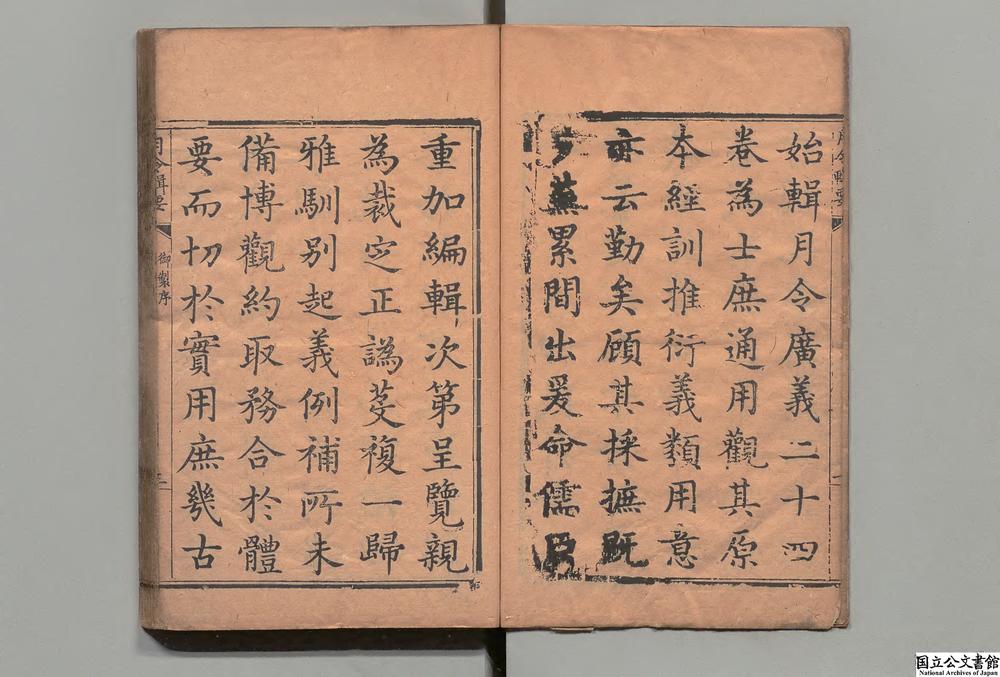 月令輯要
始輯月令廣義二十四
卷為士庶通用觀其原
本經訓推衍義類用意
亦云勤矣顧其採摭既
多蕪累間出爰命儒臣
重加編輯次第呈覽親
為裁定正譌芟複一歸
雅馴别起義例補所未
備博觀約取務合於體
要而切於實用庶幾古
月令輯要 御製序
国立公文書館
National Archives of Japan